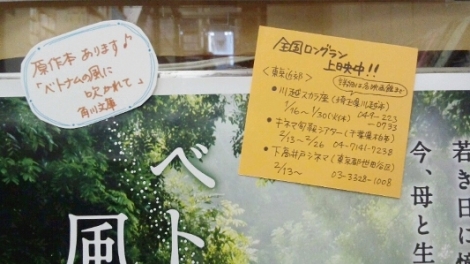 原作本 あります♪
「ベトナムの風に
吹かれて」
角川文庫
全国ロングラン
上映中!!
<東京近郊>
・川越スカラ座(埼玉県川越市)
1/16～1/30(火休) 049-223
-0733
・キネマ旬報シアター(千葉県柏市)
2/13～2/26 04-7141-7238
・下高井戸シネマ(東京都世田谷区)
2/13～ 03-3328-1008
ベト
風
若き日に
今、母と生